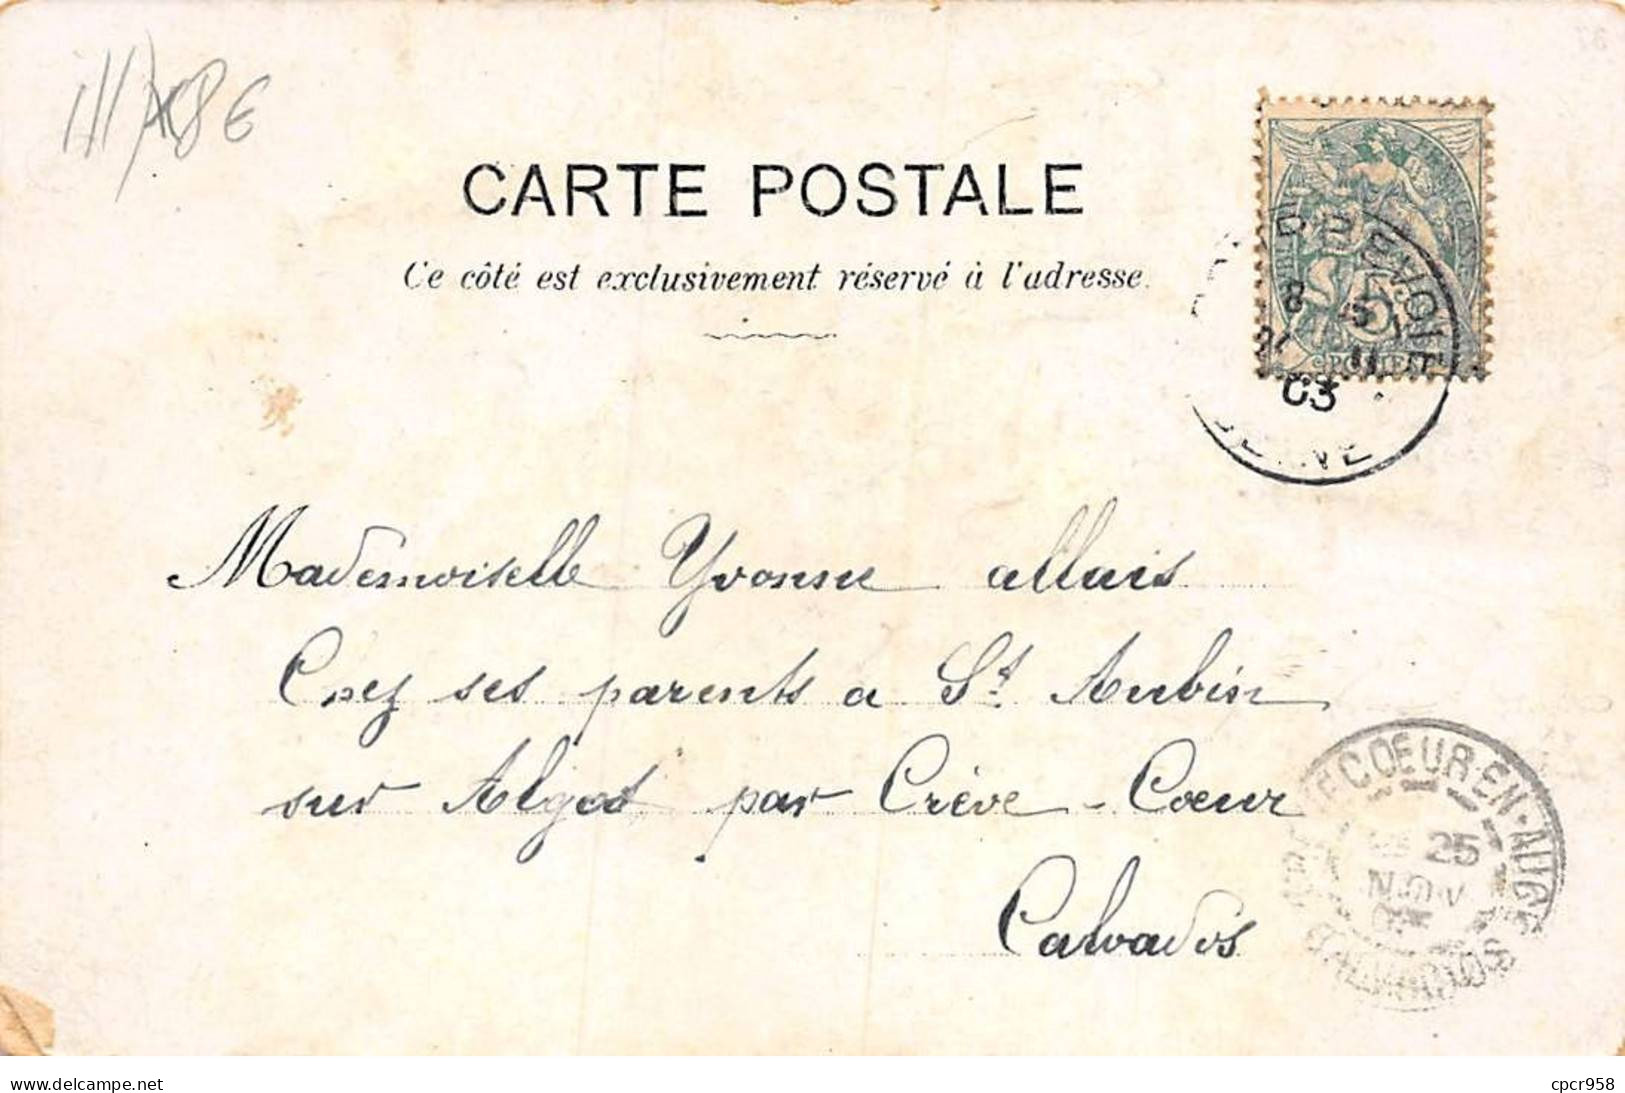 8 E
CARTE POSTALE
Ce côté est exclusivement réservé à l'adresse.
5
POSTES
03
SEINE
Mademoiselle Yvonne allais
Chez ses parents a St Aubin
sur Algot par Crève-Coeur
Calvados
COEUR-EN-AUGE
25
NOV
CALVADOS
delcampe.net
cpcr958